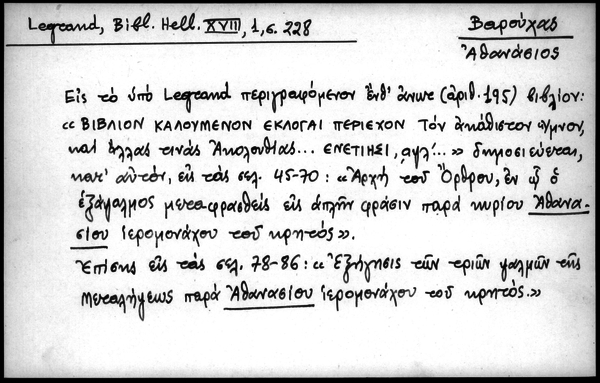 Legrand, Bibl. Hell. XVIII, 1, σ. 228
Βαρούχας
Ἀθανάσιος
Εἰς τὸ ὑπὸ Legrand περιγραφόμενον ἔνθ' ἄνωτ. (ἀριθ. 195) βιβλίον:
«ΒΙΒΛΙΟΝ ΚΑΛΟΥΜΕΝΟΝ ΕΚΛΟΓΑΙ ΠΕΡΙΕΧΟΝ Τὸν ἀκάθιστον ὕμνον,
καὶ ἄλλας τινὰς Ἀκολουθίας... ΕΝΕΤΙΗΣΙ, αψλ'...» δημοσιεύεται,
κατ' αὐτόν, εἰς τὰς σελ. 45-70: «Ἀρχὴ τοῦ Ὄρθρου, ἐν ᾧ ὁ
ἑξάψαλμος μεταφρασθεὶς εἰς ἁπλῆν φράσιν παρὰ κυρίου Ἀθανα-
σίου ἱερομονάχου τοῦ κρητός».
Ἐπίσης εἰς τὰς σελ. 78-86: «Ἐξήγησις τῶν τριῶν ψαλμῶν τῆς
Μεταλήψεως παρὰ Ἀθανασίου ἱερομονάχου τοῦ κρητός.»